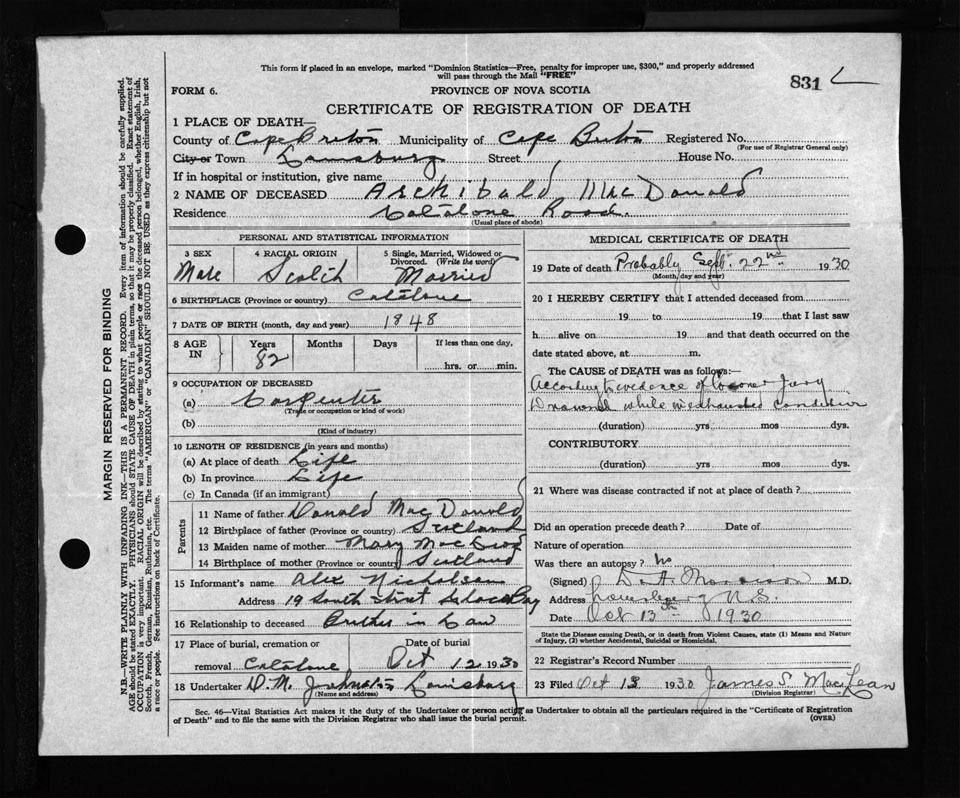 This form if placed in an envelope, marked "Dominion Statistics—Free, penalty for improper use, $300," and properly addressed
will pass through the Mail "FREE"
831
FORM 6.
PROVINCE OF NOVA SCOTIA
CERTIFICATE OF REGISTRATION OF DEATH
1 PLACE OF DEATH—
County of Cape Breton Municipality of Cape Breton Registered No.
(For use of Registrar General only)
City or Town Louisburg Street House No.
If in hospital or institution, give name
2 NAME OF DECEASED Archibald MacDonald
Residence Catalone Road.
(Usual place of abode)
PERSONAL AND STATISTICAL INFORMATION
3 SEX 4 RACIAL ORIGIN 5 Single, Married, Widowed or Divorced. (Write the word)
Male Scotch Married
6 BIRTHPLACE (Province or country) Catalone
7 DATE OF BIRTH (month, day and year) 1848
8 AGE IN Years Months Days If less than one day,
82 hrs. or min.
9 OCCUPATION OF DECEASED
(a) Carpenter
(Trade or occupation or kind of work)
(b)
(Kind of industry)
10 LENGTH OF RESIDENCE (in years and months)
(a) At place of death Life
(b) In province Life
(c) In Canada (if an immigrant)
Parents
11 Name of father Donald MacDonald
12 Birthplace of father (Province or country) Scotland
13 Maiden name of mother Mary MacLeod
14 Birthplace of mother (Province or country) Scotland
15 Informant's name Alex Nicholson
Address 19 South Street Glace Bay
16 Relationship to deceased Brother in Law
17 Place of burial, cremation or Date of burial
removal Catalone Oct 12 1930
18 Undertaker D.M. Johnston Louisburg
(Name and address)
MEDICAL CERTIFICATE OF DEATH
19 Date of death Probably Sept. 22nd 1930
(Month, day and year)
20 I HEREBY CERTIFY that I attended deceased from
19 to 19 that I last saw
h alive on 19 and that death occurred on the
date stated above, at m.
The CAUSE of DEATH was as follows:—
According to evidence of Coroner Jury
Drowned while in exhausted condition
(duration) yrs mos dys.
CONTRIBUTORY
(duration) yrs mos dys.
21 Where was disease contracted if not at place of death?
Did an operation precede death? Date of
Nature of operation
Was there an autopsy? No
(Signed) Morrison M.D.
Address Louisburg N.S.
Date Oct 13th 1930
State the Disease causing Death, or in death from Violent Causes, state (1) Means and Nature
of Injury, (2) whether Accidental, Suicidal or Homicidal.
22 Registrar's Record Number
23 Filed Oct 13 1930 James S. MacLean
(Division Registrar)
Sec. 46—Vital Statistics Act makes it the duty of the Undertaker or person acting as Undertaker to obtain all the particulars required in the "Certificate of Registration
of Death" and to file the same with the Division Registrar who shall issue the burial permit.
(OVER)
MARGIN RESERVED FOR BINDING
N.B.—WRITE PLAINLY WITH UNFADING INK—THIS IS A PERMANENT RECORD. Every item of information should be carefully supplied.
AGE should be stated EXACTLY. PHYSICIANS should STATE CAUSE OF DEATH in plain terms, so that it may be properly classified. Exact statement of
OCCUPATION is very important. RACIAL ORIGIN will be described by stating to what people or race the deceased person belonged, whether English, Irish,
Scotch, French, German, Russian, Ruthenian, etc. The terms "AMERICAN" or "CANADIAN" SHOULD NOT BE USED as they express citizenship but not
a race or people. See instructions on back of Certificate.